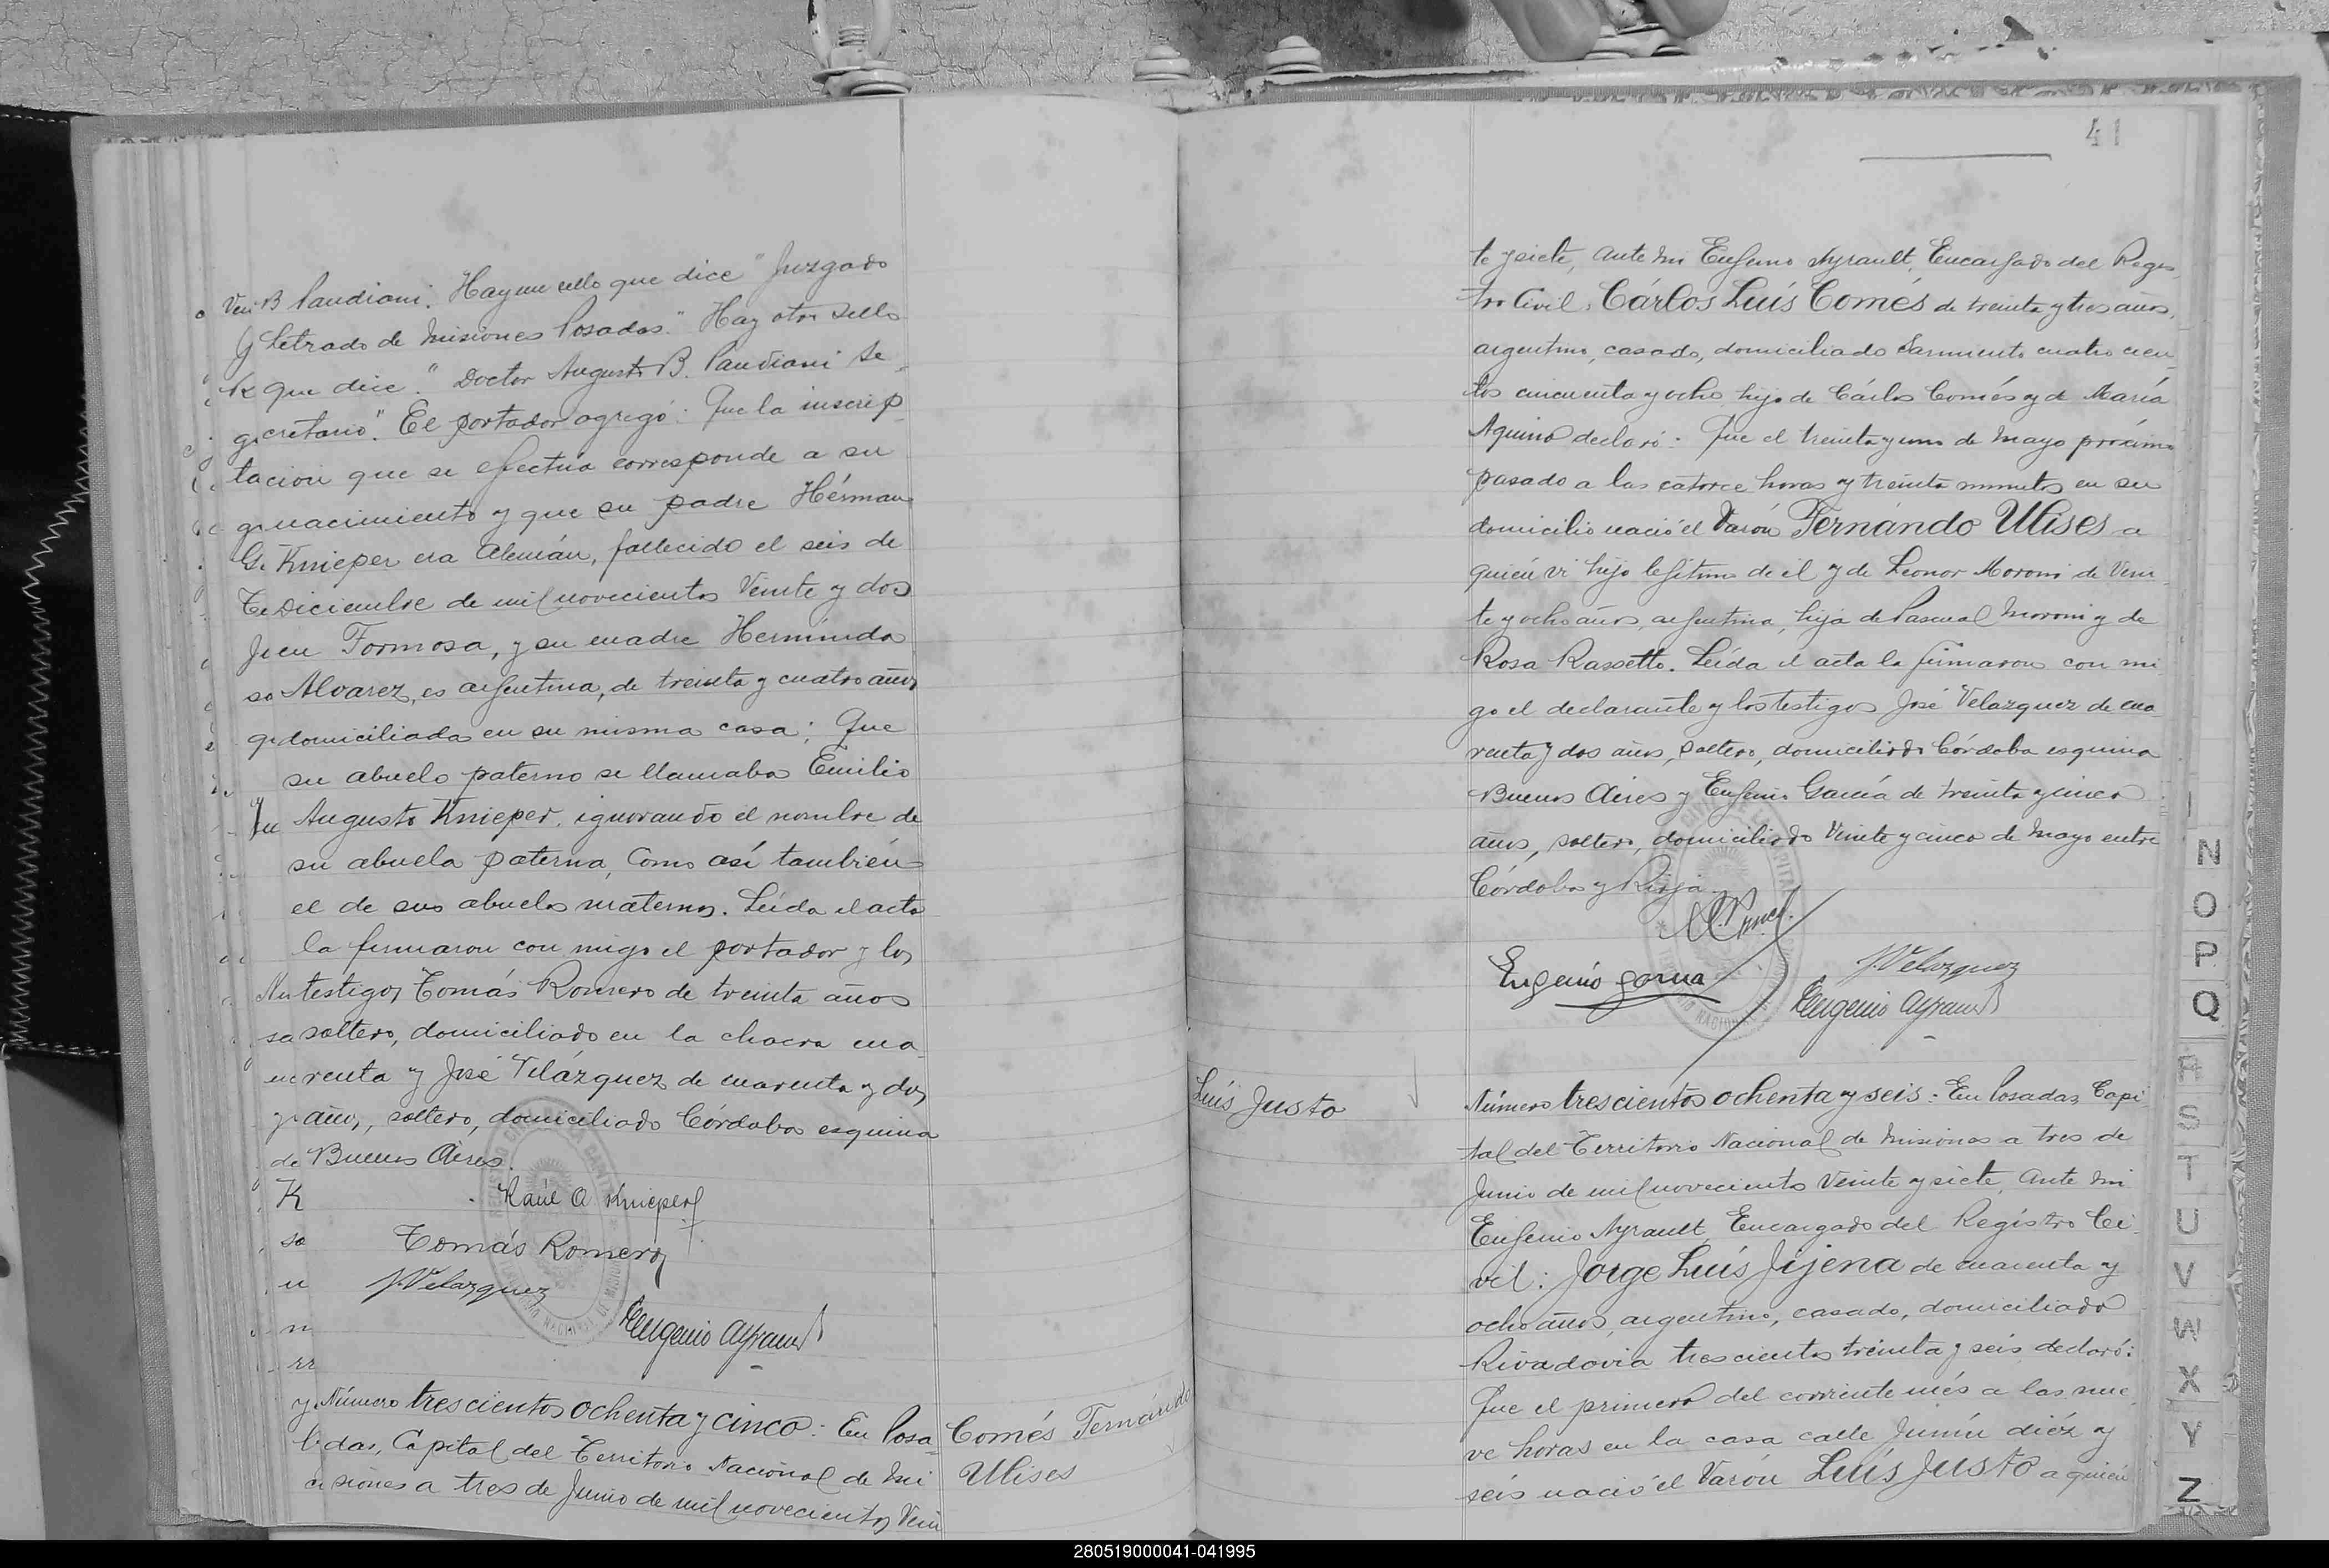 B Pandiani". Hay un sello que dice "Juzgado
Letrado de Misiones Posadas." Hay otro sello
que dice: "Doctor Augusto B. Pandiani Se-
cretario". El portador agregó: Que la inscrip-
cion que se efectúa corresponde a su
nacimiento y que su padre Hérman
G. Knieper era Alemán, fallecido el seis de
Diciembre de mil novecientos Veinte y dos
en Formosa, y su madre Herminda
Alvarez, es argentina, de treinta y cuatro años
domiciliada en su misma casa; Que
su abuelo paterno se llamaba Emilio
Augusto Knieper, ignorando el nombre de
su abuela paterna, Como así también
el de sus abuelos maternos. Leída el acta
la firmaron con migo el portador y los
testigos Tomás Romero de treinta años
soltero, domiciliado en la chacra cua-
renta y José Velázquez de cuarenta y dos
años, soltero, domiciliado Córdoba esquina
Buenos Aires.
Raúl A. Knieper
Tomás Romero
J. Velazquez
Eugenio Ayrault
Número trescientos ochenta y cinco: En Posa-
das, Capital del Territorio Nacional de Mi
siones a tres de Junio de mil novecientos Vein
Comés Fernándo
Ulises
41
te y siete, ante mi Eugenio Ayrault, Encargado del Regis
tro Civil, Cárlos Luís Comés de treinta y tres años,
argentino, casado, domiciliado Sarmiento cuatro cien-
tos cincuenta y ocho hijo de Cárlos Comés y de María
Aquino declaró: Que el treinta y uno de Mayo próximo
pasado a las catorce horas y treinta minutos en su
domicilio nació el Varón Fernándo Ulises a
quién vi hijo legítimo de él y de Leonor Moroni de Vein-
te y ocho años, argentina, hija de Pascual Moroni y de
Rosa Rassetto. Leída el acta la firmaron con mi
go el declarante y los testigos José Velazquez de cua
renta y dos años, soltero, domiciliado Córdoba esquina
Buenos Aires y Eugenio García de treinta y cinco
años, soltero, domiciliado Veinte y cinco de Mayo entre
Córdoba y Rioja.
Eugenio garcia
J. Velazquez
Eugenio Ayrault
Luís Justo
Número trescientos ochenta y seis: En Posadas, Capi-
tal del Territorio Nacional de Misiones a tres de
Junio de mil novecientos Veinte y siete, Ante mi
Eugenio Ayrault, Encargado del Registro Ci-
vil: Jorge Luís Jijena de cuarenta y
ocho años, argentino, casado, domiciliado
Rivadavia trescientos treinta y seis declaró:
Que el primero del corriente més a las nue-
ve horas en la casa calle Junín diéz y
seis nació el Varón Luís Justo a quien
N
O
P
Q
R
S
T
U
V
W
X
Y
Z
280519000041-041995